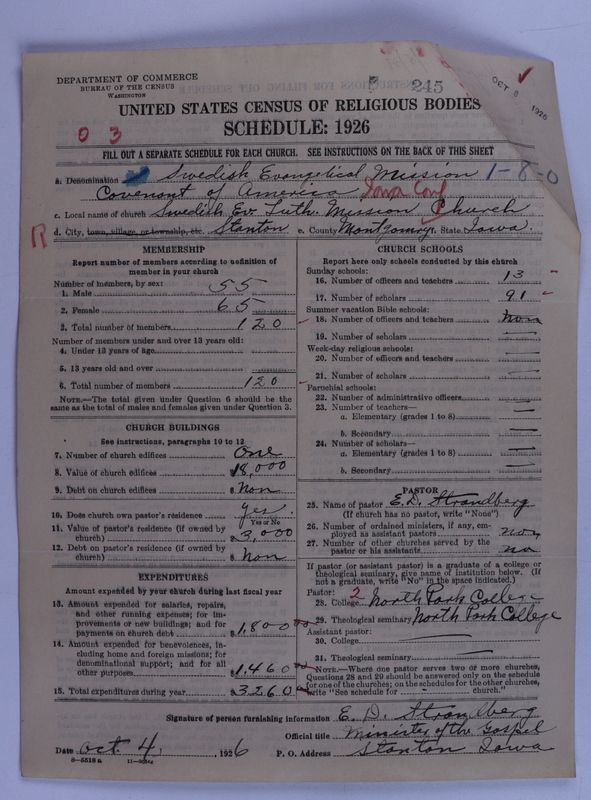 DEPARTMENT OF COMMERCE
BUREAU OF THE CENSUS
WASHINGTON
245
OCT 8 1926
UNITED STATES CENSUS OF RELIGIOUS BODIES
SCHEDULE: 1926
0 3
FILL OUT A SEPARATE SCHEDULE FOR EACH CHURCH. SEE INSTRUCTIONS ON THE BACK OF THIS SHEET
a. Denomination Swedish Evangelical Mission 1-8-0
Covenant of America Iowa Conf
c. Local name of church Swedish Ev. Luth. Mission Church
R
d. City, town, village, or township, etc. Stanton e. County Montgomery f. State Iowa
MEMBERSHIP
Report number of members according to definition of
member in your church
Number of members, by sex:
1. Male 55
2. Female 65
3. Total number of members 120
Number of members under and over 13 years old:
4. Under 13 years of age
5. 13 years old and over
6. Total number of members 120
NOTE.—The total given under Question 6 should be the
same as the total of males and females given under Question 3.
CHURCH BUILDINGS
See instructions, paragraphs 10 to 12
7. Number of church edifices One
8. Value of church edifices $ 18,000
9. Debt on church edifices $ Non
10. Does church own pastor's residence yes.
Yes or No
11. Value of pastor's residence (if owned by
church) $ 3,000
12. Debt on pastor's residence (if owned by
church) $ Non
EXPENDITURES
Amount expended by your church during last fiscal year
13. Amount expended for salaries, repairs,
and other running expenses; for im-
provements or new buildings; and for
payments on church debt $ 1,800 00
14. Amount expended for benevolences, in-
cluding home and foreign missions; for
denominational support; and for all
other purposes $ 1,460 00
15. Total expenditures during year $ 3260
CHURCH SCHOOLS
Report here only schools conducted by this church
Sunday schools:
16. Number of officers and teachers 13
17. Number of scholars 91
Summer vacation Bible schools:
18. Number of officers and teachers Non
19. Number of scholars —
Week-day religious schools:
20. Number of officers and teachers —
21. Number of scholars —
Parochial schools:
22. Number of administrative officers —
23. Number of teachers—
a. Elementary (grades 1 to 8) —
b. Secondary —
24. Number of scholars—
a. Elementary (grades 1 to 8) —
b. Secondary —
PASTOR
25. Name of pastor E. D. Strandberg
(If church has no pastor, write "None")
26. Number of ordained ministers, if any, em-
ployed as assistant pastors non
27. Number of other churches served by the
pastor or his assistants no
If pastor (or assistant pastor) is a graduate of a college or
theological seminary, give name of institution below. (If
not a graduate, write "No" in the space indicated.)
Pastor: 2
28. College North Park College
29. Theological seminary North Park College
Assistant pastor:
30. College
31. Theological seminary
NOTE.—Where one pastor serves two or more churches,
Questions 28 and 29 should be answered only on the schedule
for one of the churches; on the schedules for the other churches,
write "See schedule for - church."
Signature of person furnishing information E. D. Strandberg
Official title Minister of the Gospel
Date Oct 4, 1926 P. O. Address Stanton Iowa